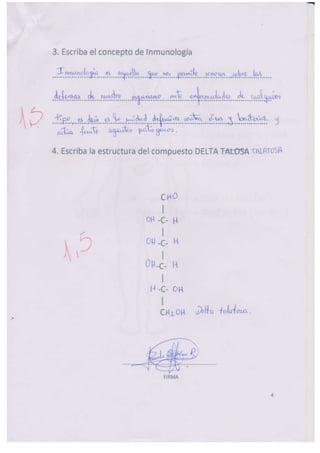 3. Escriba el concepto de Inmunología
Inmunología es aquella que nos permite conocer sobre las
defensas de nuestro organismo ante enfermedades de cualquier
tipo, es decir es la unidad defensiva contra virus y bacterias y
actúa frente agentes patógenos.
1,5
4. Escriba la estructura del compuesto DELTA TALOSA TALATOSA
CHO
|
OH -C- H
|
OH -C- H
|
OH -C- H
|
H -C- OH
|
CH2OH Delta talatosa.
1,5
FIRMA
4